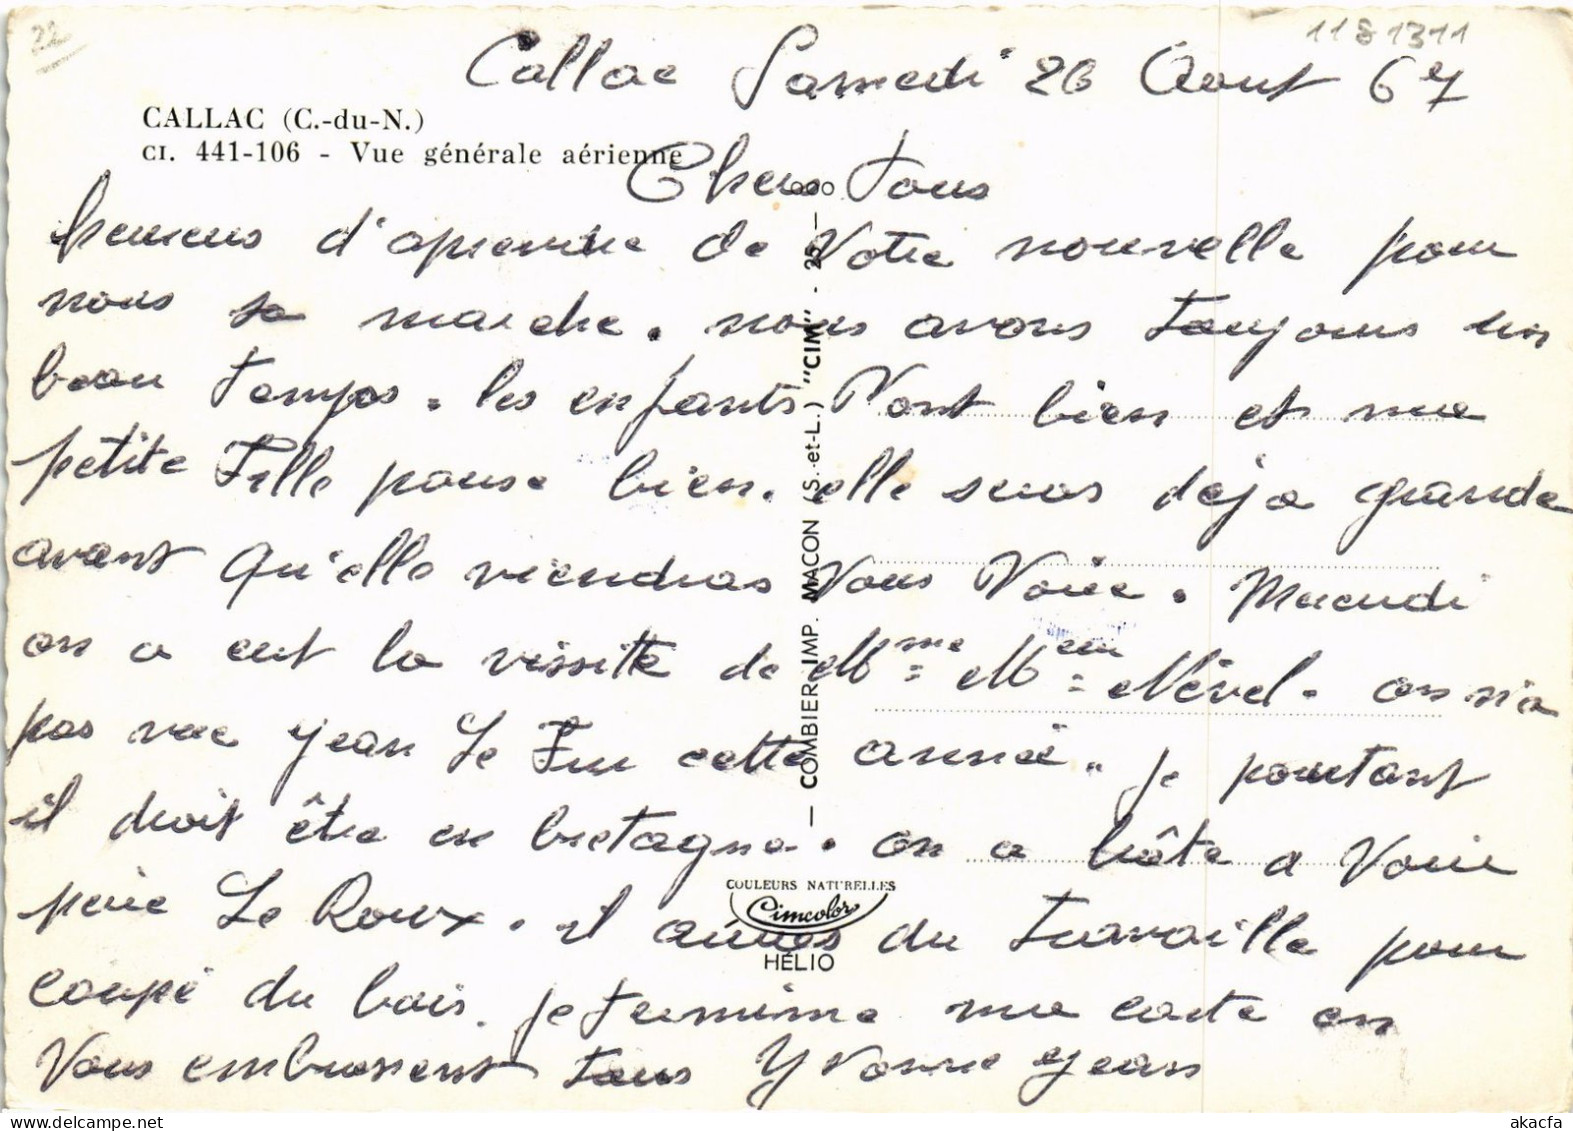 22
1181311
Callac Samedi 26 Aout 67
CALLAC (C.-du-N.)
CI. 441-106 - Vue générale aérienne
Chers Tous
heureus d'aprendre de Votre nouvelle pour
nous sa marche. nous avons Toujours un
beau Temps. les enfants Vont bien et ma
petite Fille pouse bien. elle seras deja grande
avant Qu'elle viendras Vous Voire. Mercredi
on a eut la vissitte de Mme = Mem = Nével. on n'a
pas vue jean Le Fur cette année. je pourtant
il droit être en bretagne. on a hâte a Voire
peire Le Roux. il auras du Travaille pour
coupé du bois. je Termime ma carte en
Vous embrassent tous Yvonne Jean
— COMBIER IMP. MACON (S.-et-L.) "CIM" - 25 —
COULEURS NATURELLES
Cimcolor
HÉLIO
akacfa